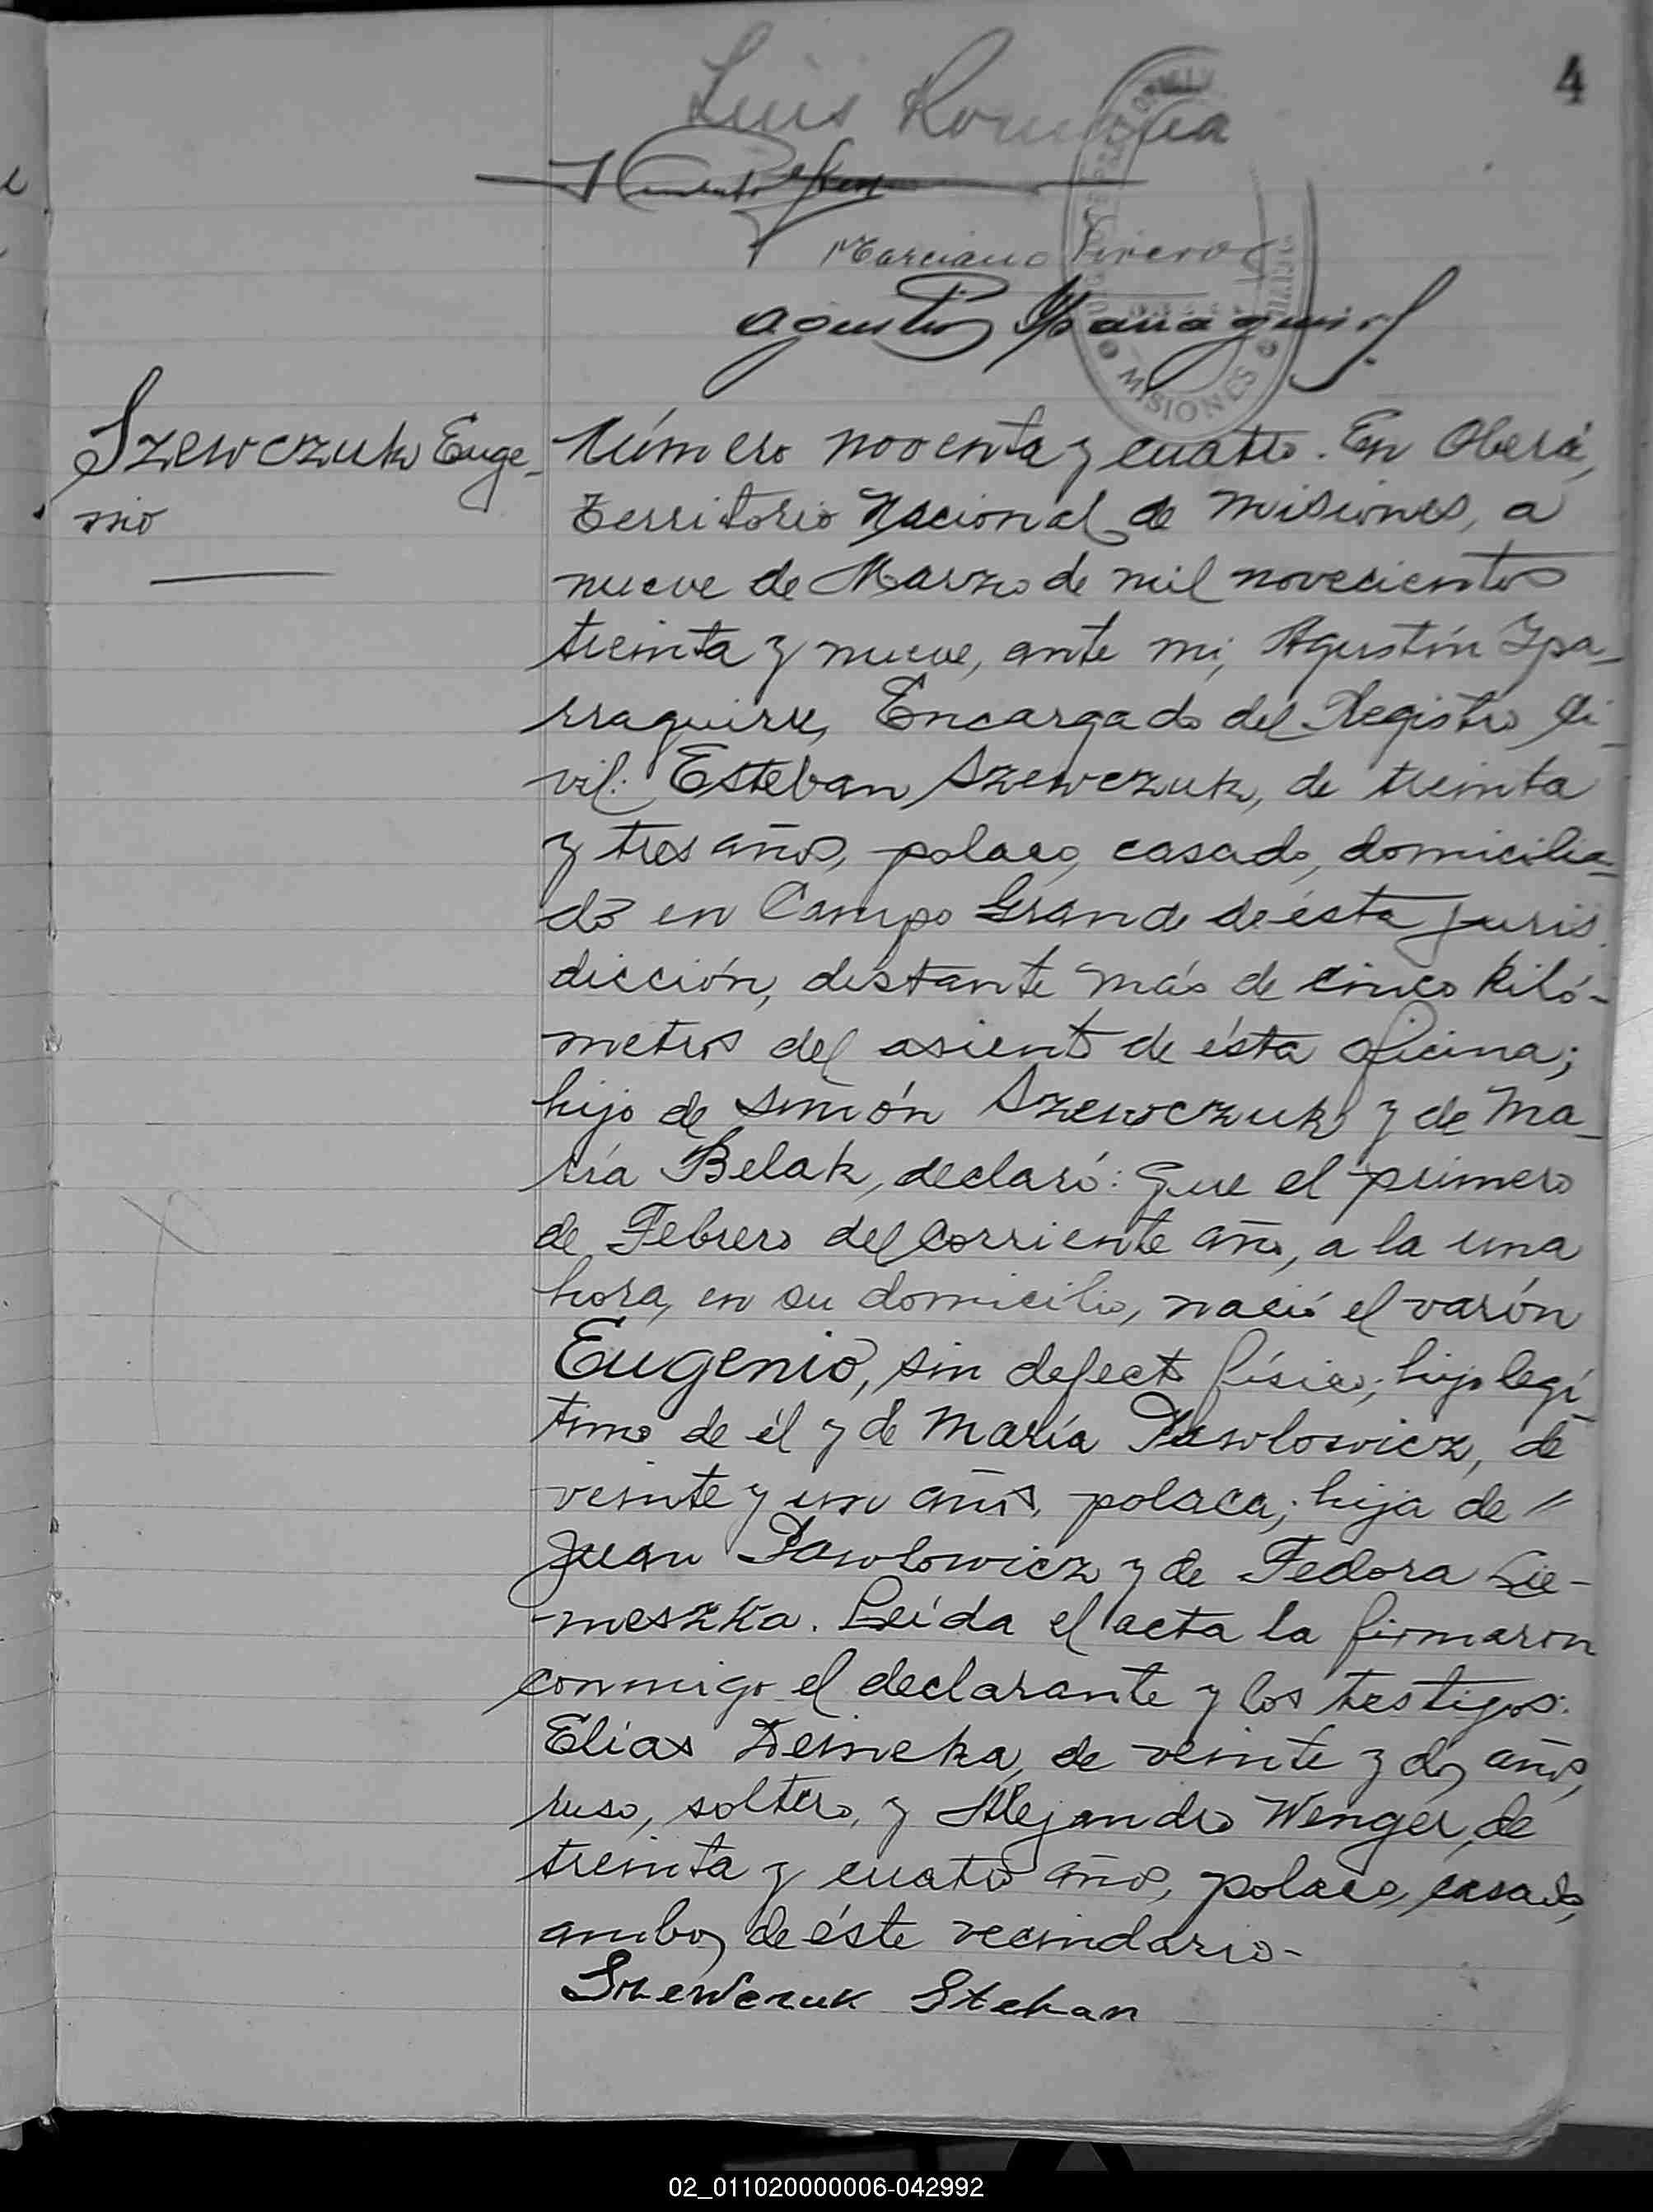 4
Luis
Marciano
Agustín Yparraguirre
MISIONES
Szewczuk Euge-
nio
Número noventa y cuatro. En Oberá,
Territorio Nacional de Misiones, a
nueve de Marzo de mil novecientos
treinta y nueve, ante mi, Agustín Ypa-
rraguirre, Encargado del Registro Ci-
vil: Esteban Szewczuk, de treinta
y tres años, polaco, casado, domicilia-
do en Campo Grande de ésta juris
dicción, distante más de cinco kiló-
metros del asiento de ésta oficina;
hijo de Simón Szewczuk y de Ma-
ría Belak, declaró: Que el primero
de Febrero del corriente año, a la una
hora, en su domicilio, nació el varón
Eugenio, sin defecto físico; hijo legí-
timo de él y de María Pawlowicz, de
veinte y un años, polaca; hija de //
Juan Pawlowicz y de Fedora Lie-
-meszka. Leída el acta la firmaron
conmigo el declarante y los testigos:
Elías Demeka, de veinte y dos años,
ruso, soltero, y Alejandro Wenger, de
treinta y cuatro años, polaco, casado,
ambos de éste vecindario-
Szewczuk Stefan
02_011020000006-042992